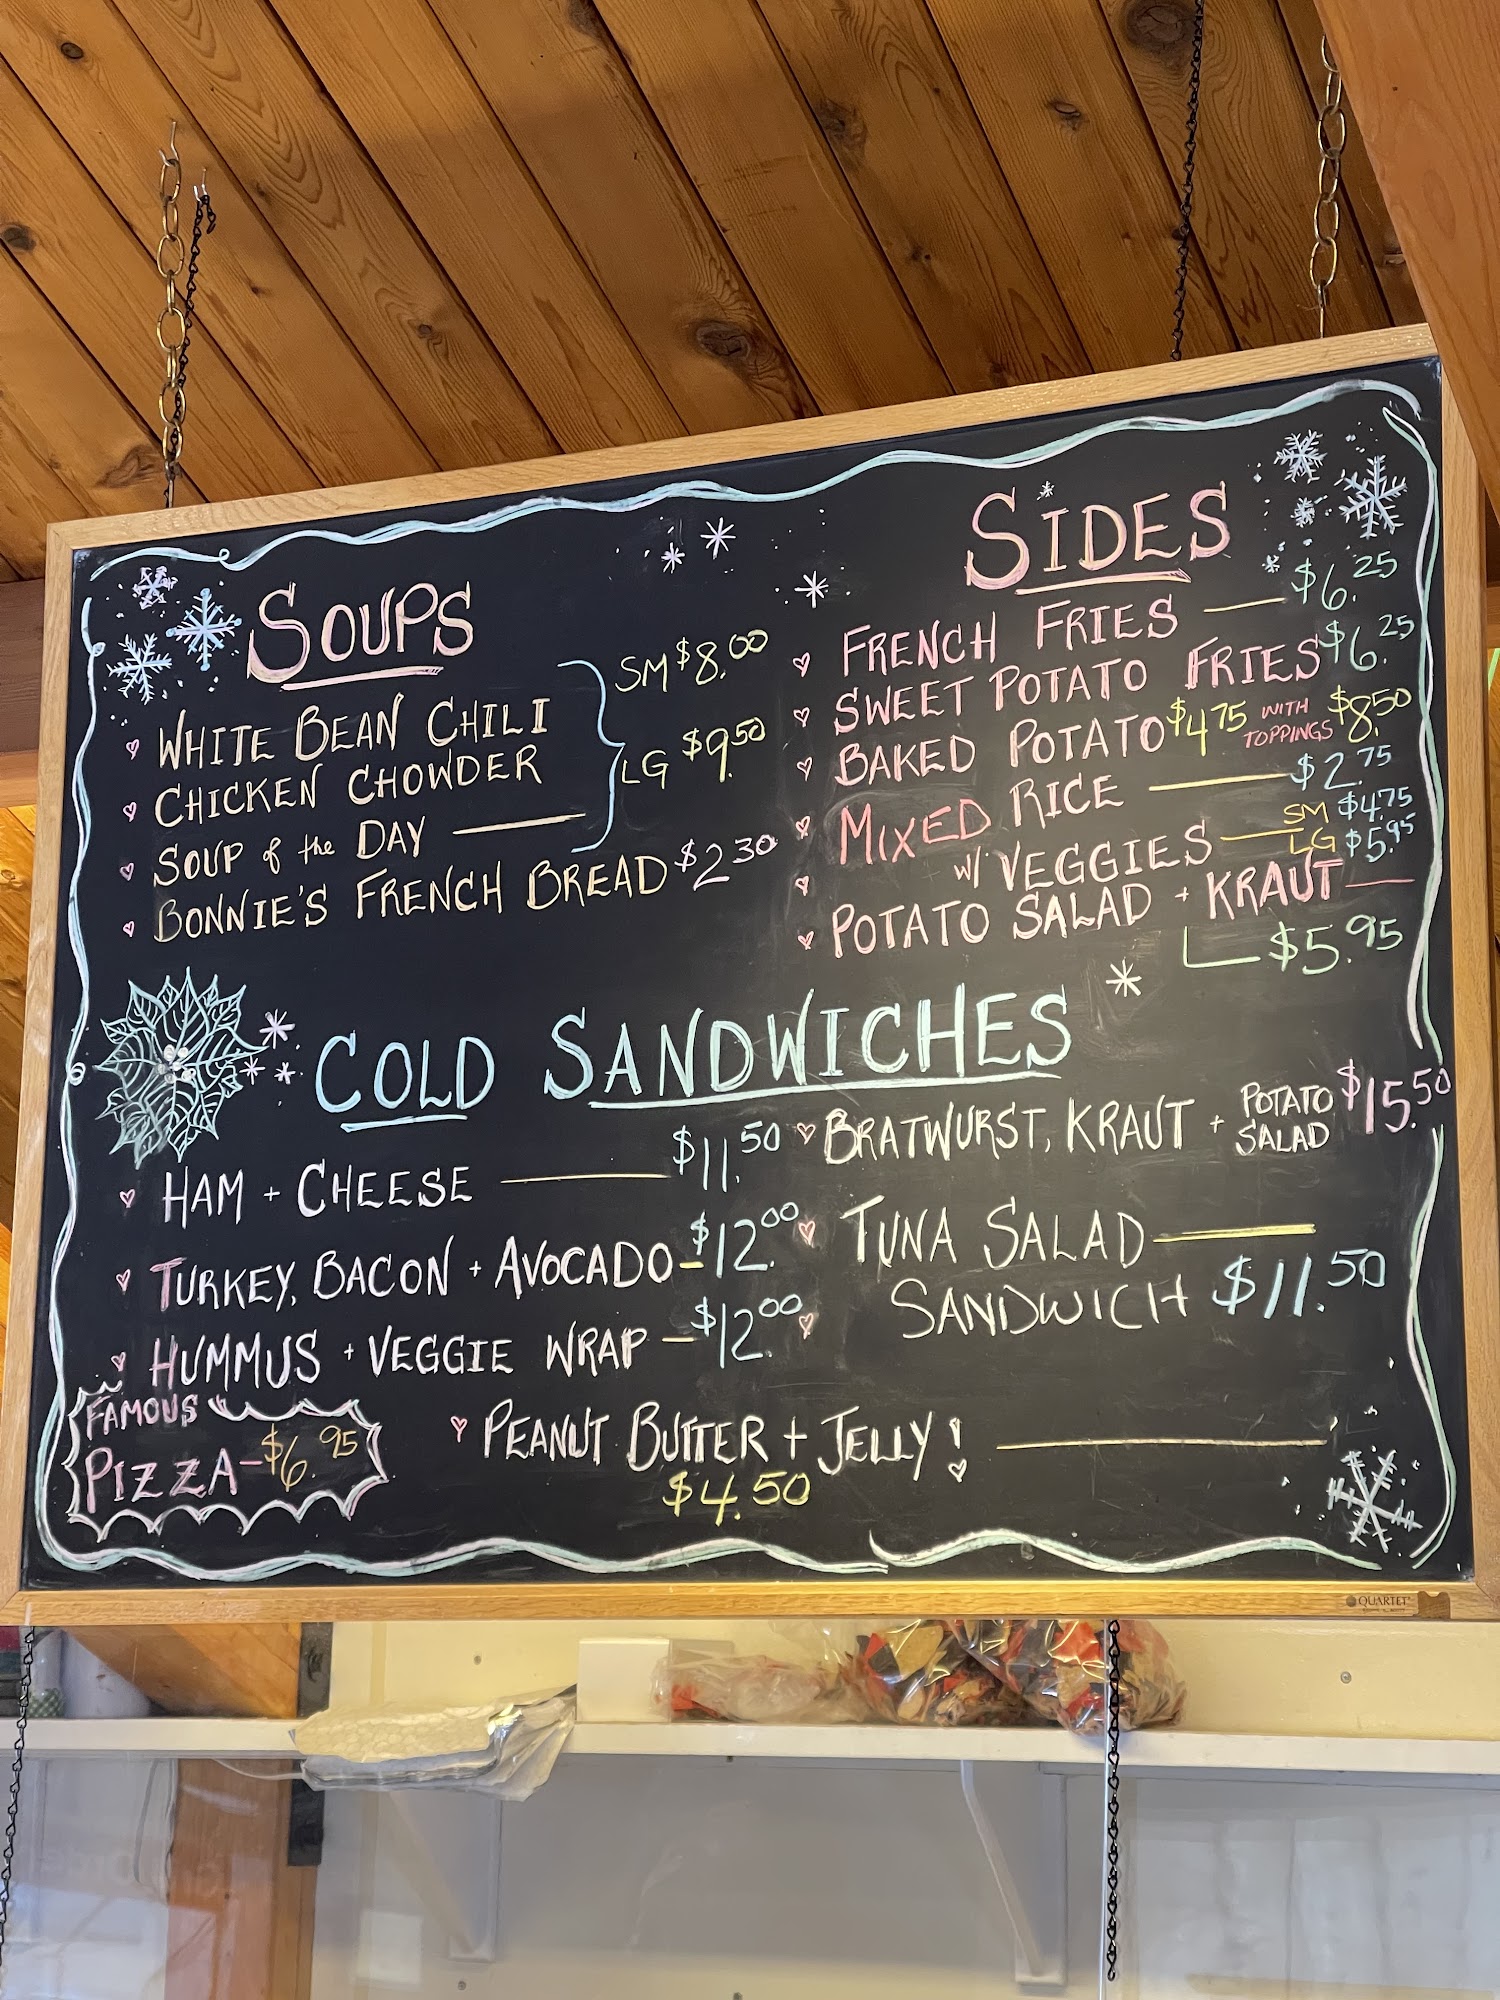 SOUPS
WHITE BEAN CHILI
CHICKEN CHOWDER
SOUP of the DAY
SM $8.00
LG $9.50
BONNIE'S FRENCH BREAD $2.30
SIDES
FRENCH FRIES $6.25
SWEET POTATO FRIES $6.25
BAKED POTATO $4.75 WITH TOPPINGS $8.50
MIXED RICE $2.75
W/ VEGGIES SM $4.75
LG $5.95
POTATO SALAD + KRAUT
$5.95
COLD SANDWICHES
HAM + CHEESE $11.50
TURKEY, BACON + AVOCADO - $12.00
HUMMUS + VEGGIE WRAP - $12.00
BRATWURST, KRAUT + POTATO SALAD $15.50
TUNA SALAD
SANDWICH $11.50
PEANUT BUTTER + JELLY!
$4.50
FAMOUS
PIZZA - $6.95
QUARTET